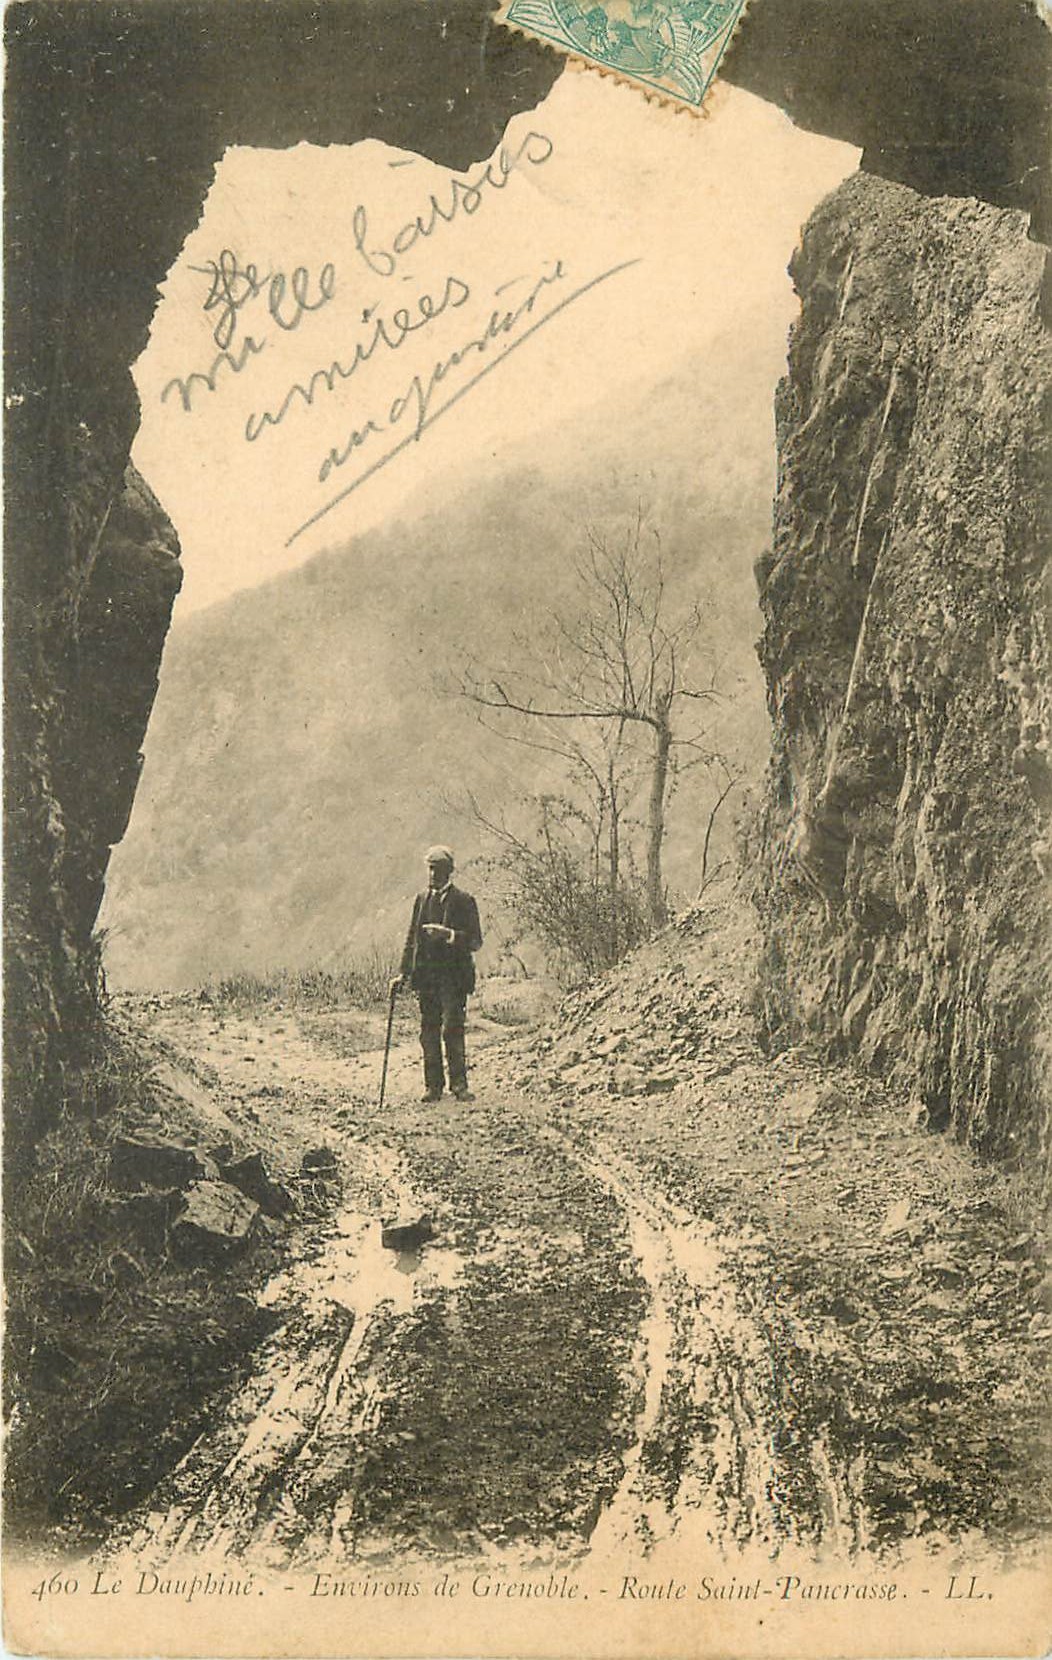 mille baisers
amitiées
augustine
460 Le Dauphiné. - Environs de Grenoble. - Route Saint-Pancrasse. - LL.